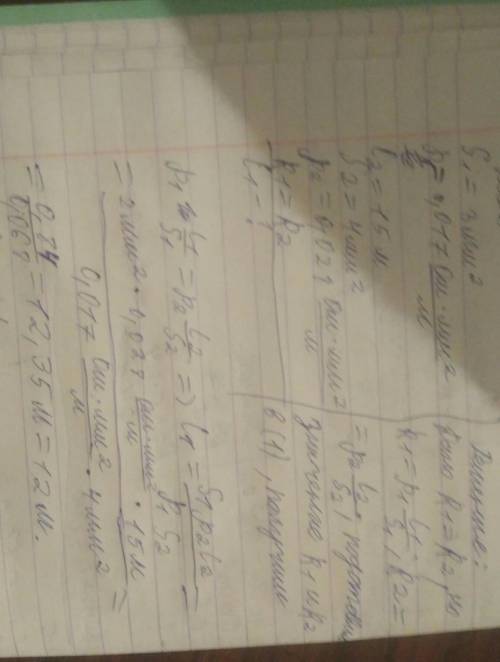 S1 = 2 мм²
ρ1 = 0,017 Ом·мм²/м
l2 = 15 м
S2 = 4 мм²
ρ2 = 0,028 Ом·мм²/м
R1 = R2
l1 = ?
Решение:
R1 = R2, но
R1 = ρ1 l1/S1; R2 =
= ρ2 l2/S2; подставим
значение R1 и R2
в (1), получим
ρ1 l1/S1 = ρ2 l2/S2 => l1 = S1 ρ2 l2/ρ1 S2 =
= 2 мм² · 0,028 Ом·мм²/м · 15 м / 0,017 Ом·мм²/м · 4 мм² =
= 0,84/0,068 = 12,35 м = 12 м.